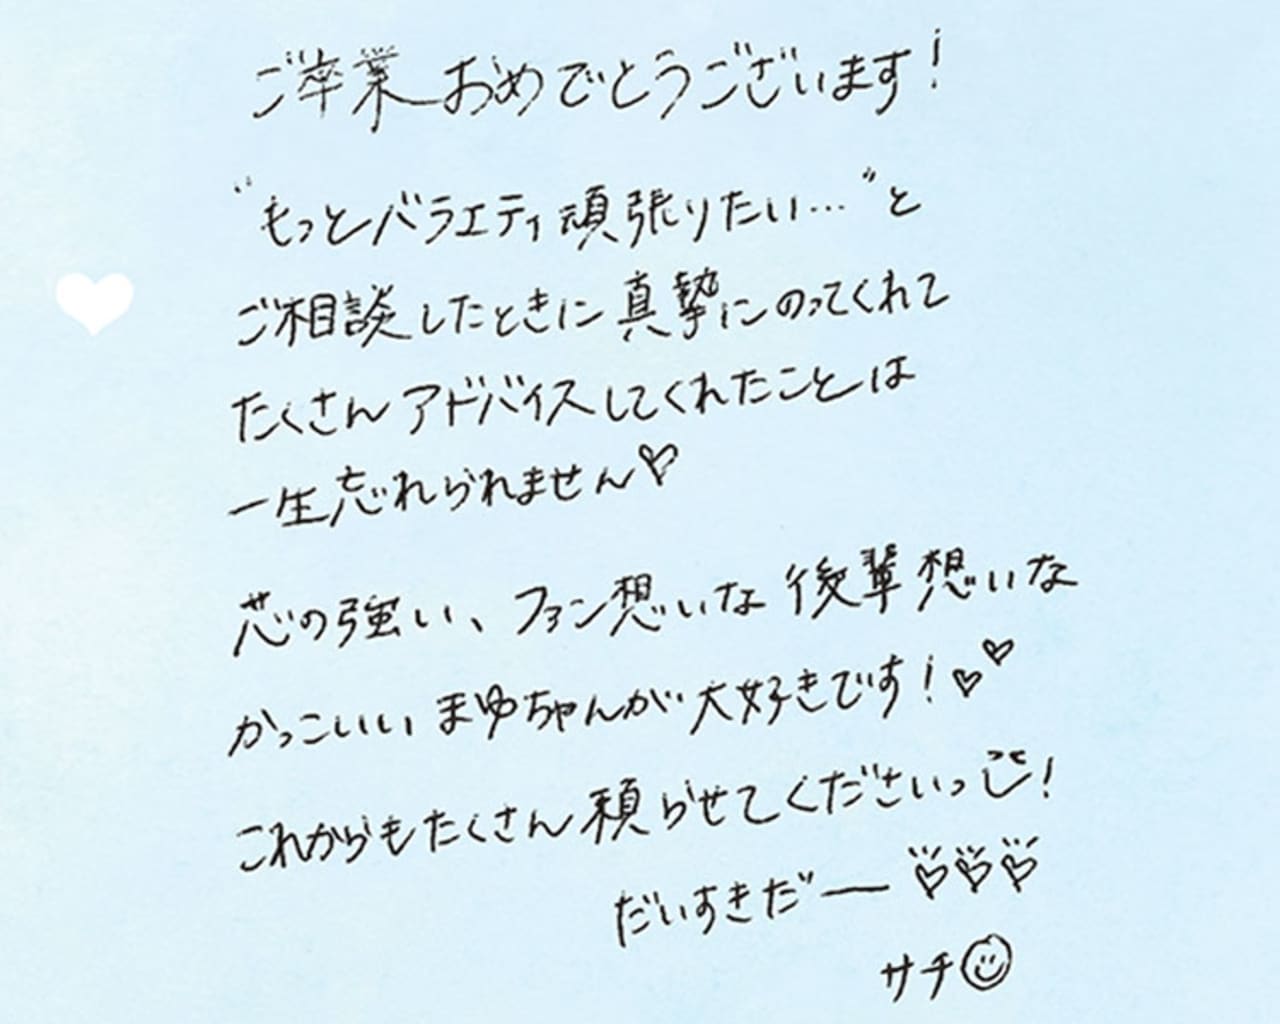 ご卒業おめでとうございます!
"もっとバラエティ頑張りたい…"と
ご相談したときに真摯にのってくれて
たくさんアドバイスしてくれたことは
一生忘れられません♡
芯の強い、ファン想いな後輩想いな
かっこいいまゆちゃんが大好きです!♡♡
これからもたくさん頼らせてくださいっ!
だいすきだー♡♡♡
サチ☺